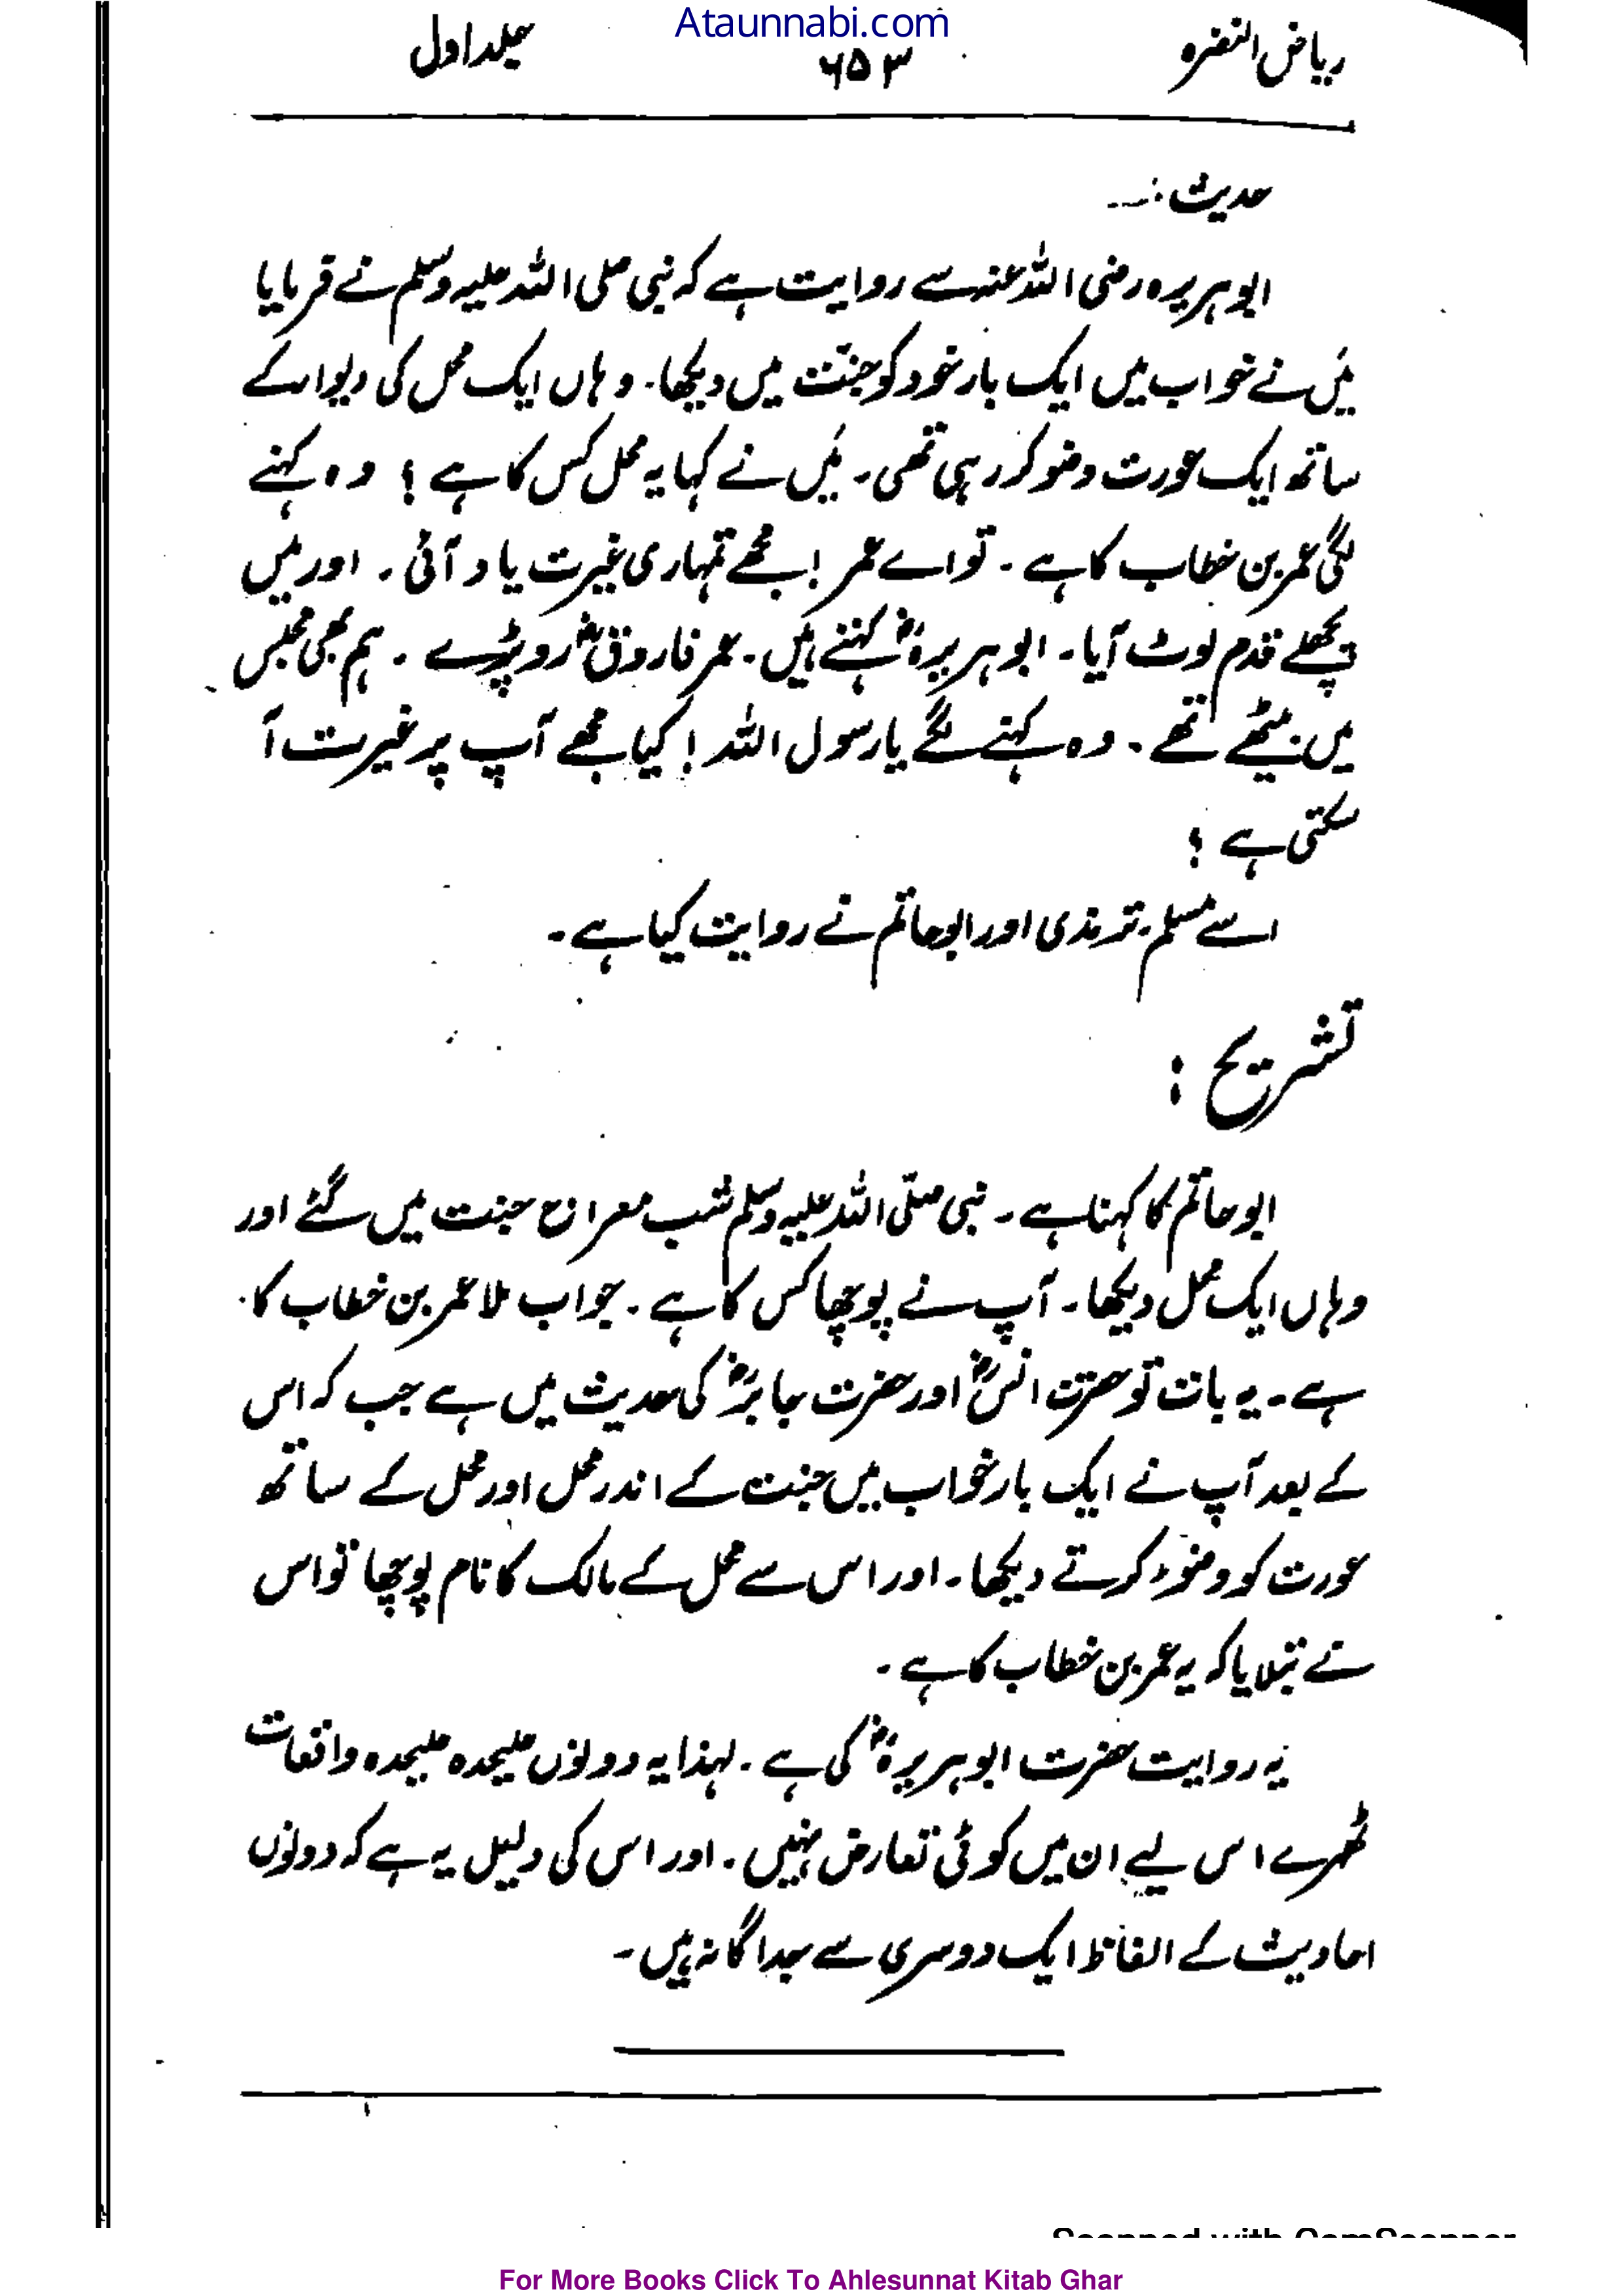 Ataunnabi.com
ریاض النضرہ ۶۵۳ جلد اول
حدیث :۔
ابوہریرہ رضی اللہ عنہ سے روایت ہے کہ نبی صلی اللہ علیہ وسلم نے فرمایا
میں نے خواب میں ایک بار خود کو جنّت میں دیکھا۔ وہاں ایک محل کی دیوار کے
ساتھ ایک عورت وضو کر رہی تھی۔ میں نے کہا یہ محل کس کا ہے ؟ وہ کہنے
لگی عمر بن خطاب کا ہے ۔ تو اے عمر ! مجھے تمہاری غیرت یاد آئی ۔ اور میں
پچھلے قدم لوٹ آیا۔ ابوہریرہؓ کہتے ہیں۔ عمر فاروقؓ رو پڑے ۔ ہم بھی مجلس
میں بیٹھے تھے ۔ وہ کہنے لگے یا رسول اللہ ! کیا مجھے آپ پر غیرت آ
سکتی ہے ؟
اسے مسلم، ترمذی اور ابوحاتم نے روایت کیا ہے ۔
تشریح :
ابوحاتم کا کہنا ہے ۔ نبی صلّی اللہ علیہ وسلم شب معراج جنت میں گئے اور
وہاں ایک محل دیکھا۔ آپ نے پوچھا کس کا ہے ۔ جواب ملا عمر بن خطاب کا
ہے ۔ یہ بات تو حضرت انسؓ اور حضرت جابرؓ کی حدیث میں ہے جب کہ اس
کے بعد آپ نے ایک بار خواب میں جنت کے اندر محل اور محل کے ساتھ
عورت کو وضوء کرتے دیکھا۔ اور اس سے محل کے مالک کا نام پوچھا تو اس
نے بتلایا کہ یہ عمر بن خطاب کا ہے ۔
یہ روایت حضرت ابوہریرہؓ کی ہے ۔ لہذا یہ دونوں علیحدہ علیحدہ واقعات
ٹھہرے اس لیے ان میں کوئی تعارض نہیں ۔ اور اس کی دلیل یہ ہے کہ دونوں
احادیث کے الفاظ ایک دوسری سے جداگانہ ہیں ۔
Scanned with CamScanner
For More Books Click To Ahlesunnat Kitab Ghar